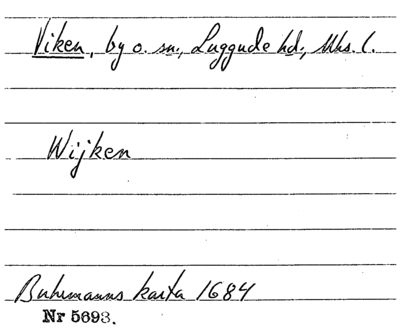 Viken, by o. sn., Luggude hd., Mhs. l.
Wijken
Buhrmanns karta 1684
Nr 5693.